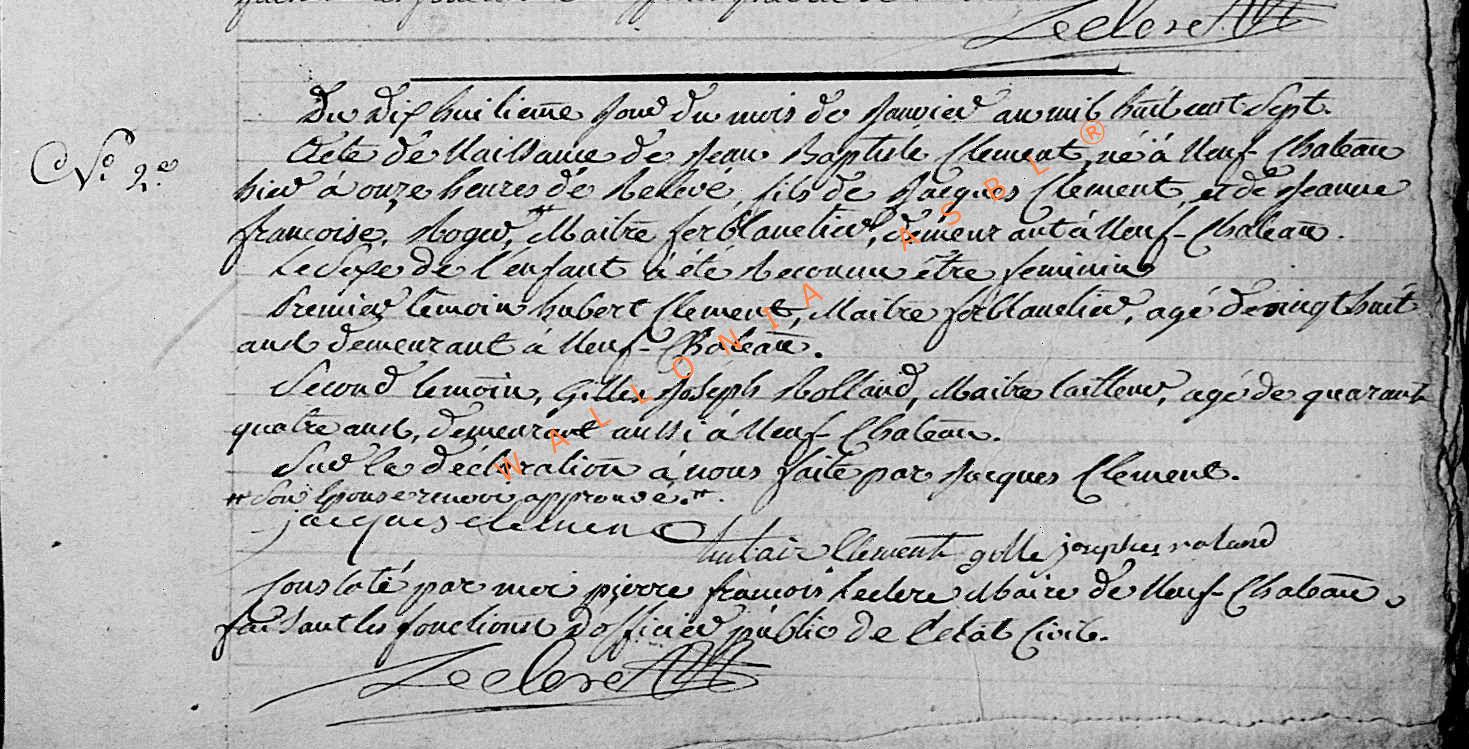 Leclere
Du Dix huitieme Jour du mois de Janvier an mil huit cent Sept.
N.° 2.e
Acte de Naissance de Jean Baptiste Clement, né à Neuf-Chateau
hier à onze heures de Relevé, fils de Jacques Clement, et de Jeanne
françoise Roger, # Maitre ferblantier, demeurant à Neuf-Chateau.
Le Sexe de l'enfant à été Reconnu être feminin
Premier temoin hubert Clement, Maitre ferblantier, agé de vingt huit
ans demeurant à Neuf-Chateau.
Second temoin, Gilles Joseph Rolland, Maitre tailleur, agé de quarante
quatre ans, demeurant aussi à Neuf-Chateau.
Sur la déclaration à nous faite par Jacques Clement.
# Son Epouse renvoi approuvé. #.
jacques clement
hubair Clement gille joseph roland
Constaté par moi pierre françois Leclere Maire de Neuf-Chateau,
faisant les fonctions d'officier public de l'etat Civil.
Leclere
WALLONIA ASBL ®